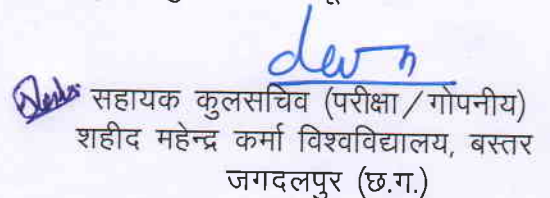 सहायक कुलसचिव (परीक्षा / गोपनीय)
शहीद महेन्द्र कर्मा विश्वविद्यालय, बस्तर
जगदलपुर (छ.ग.)